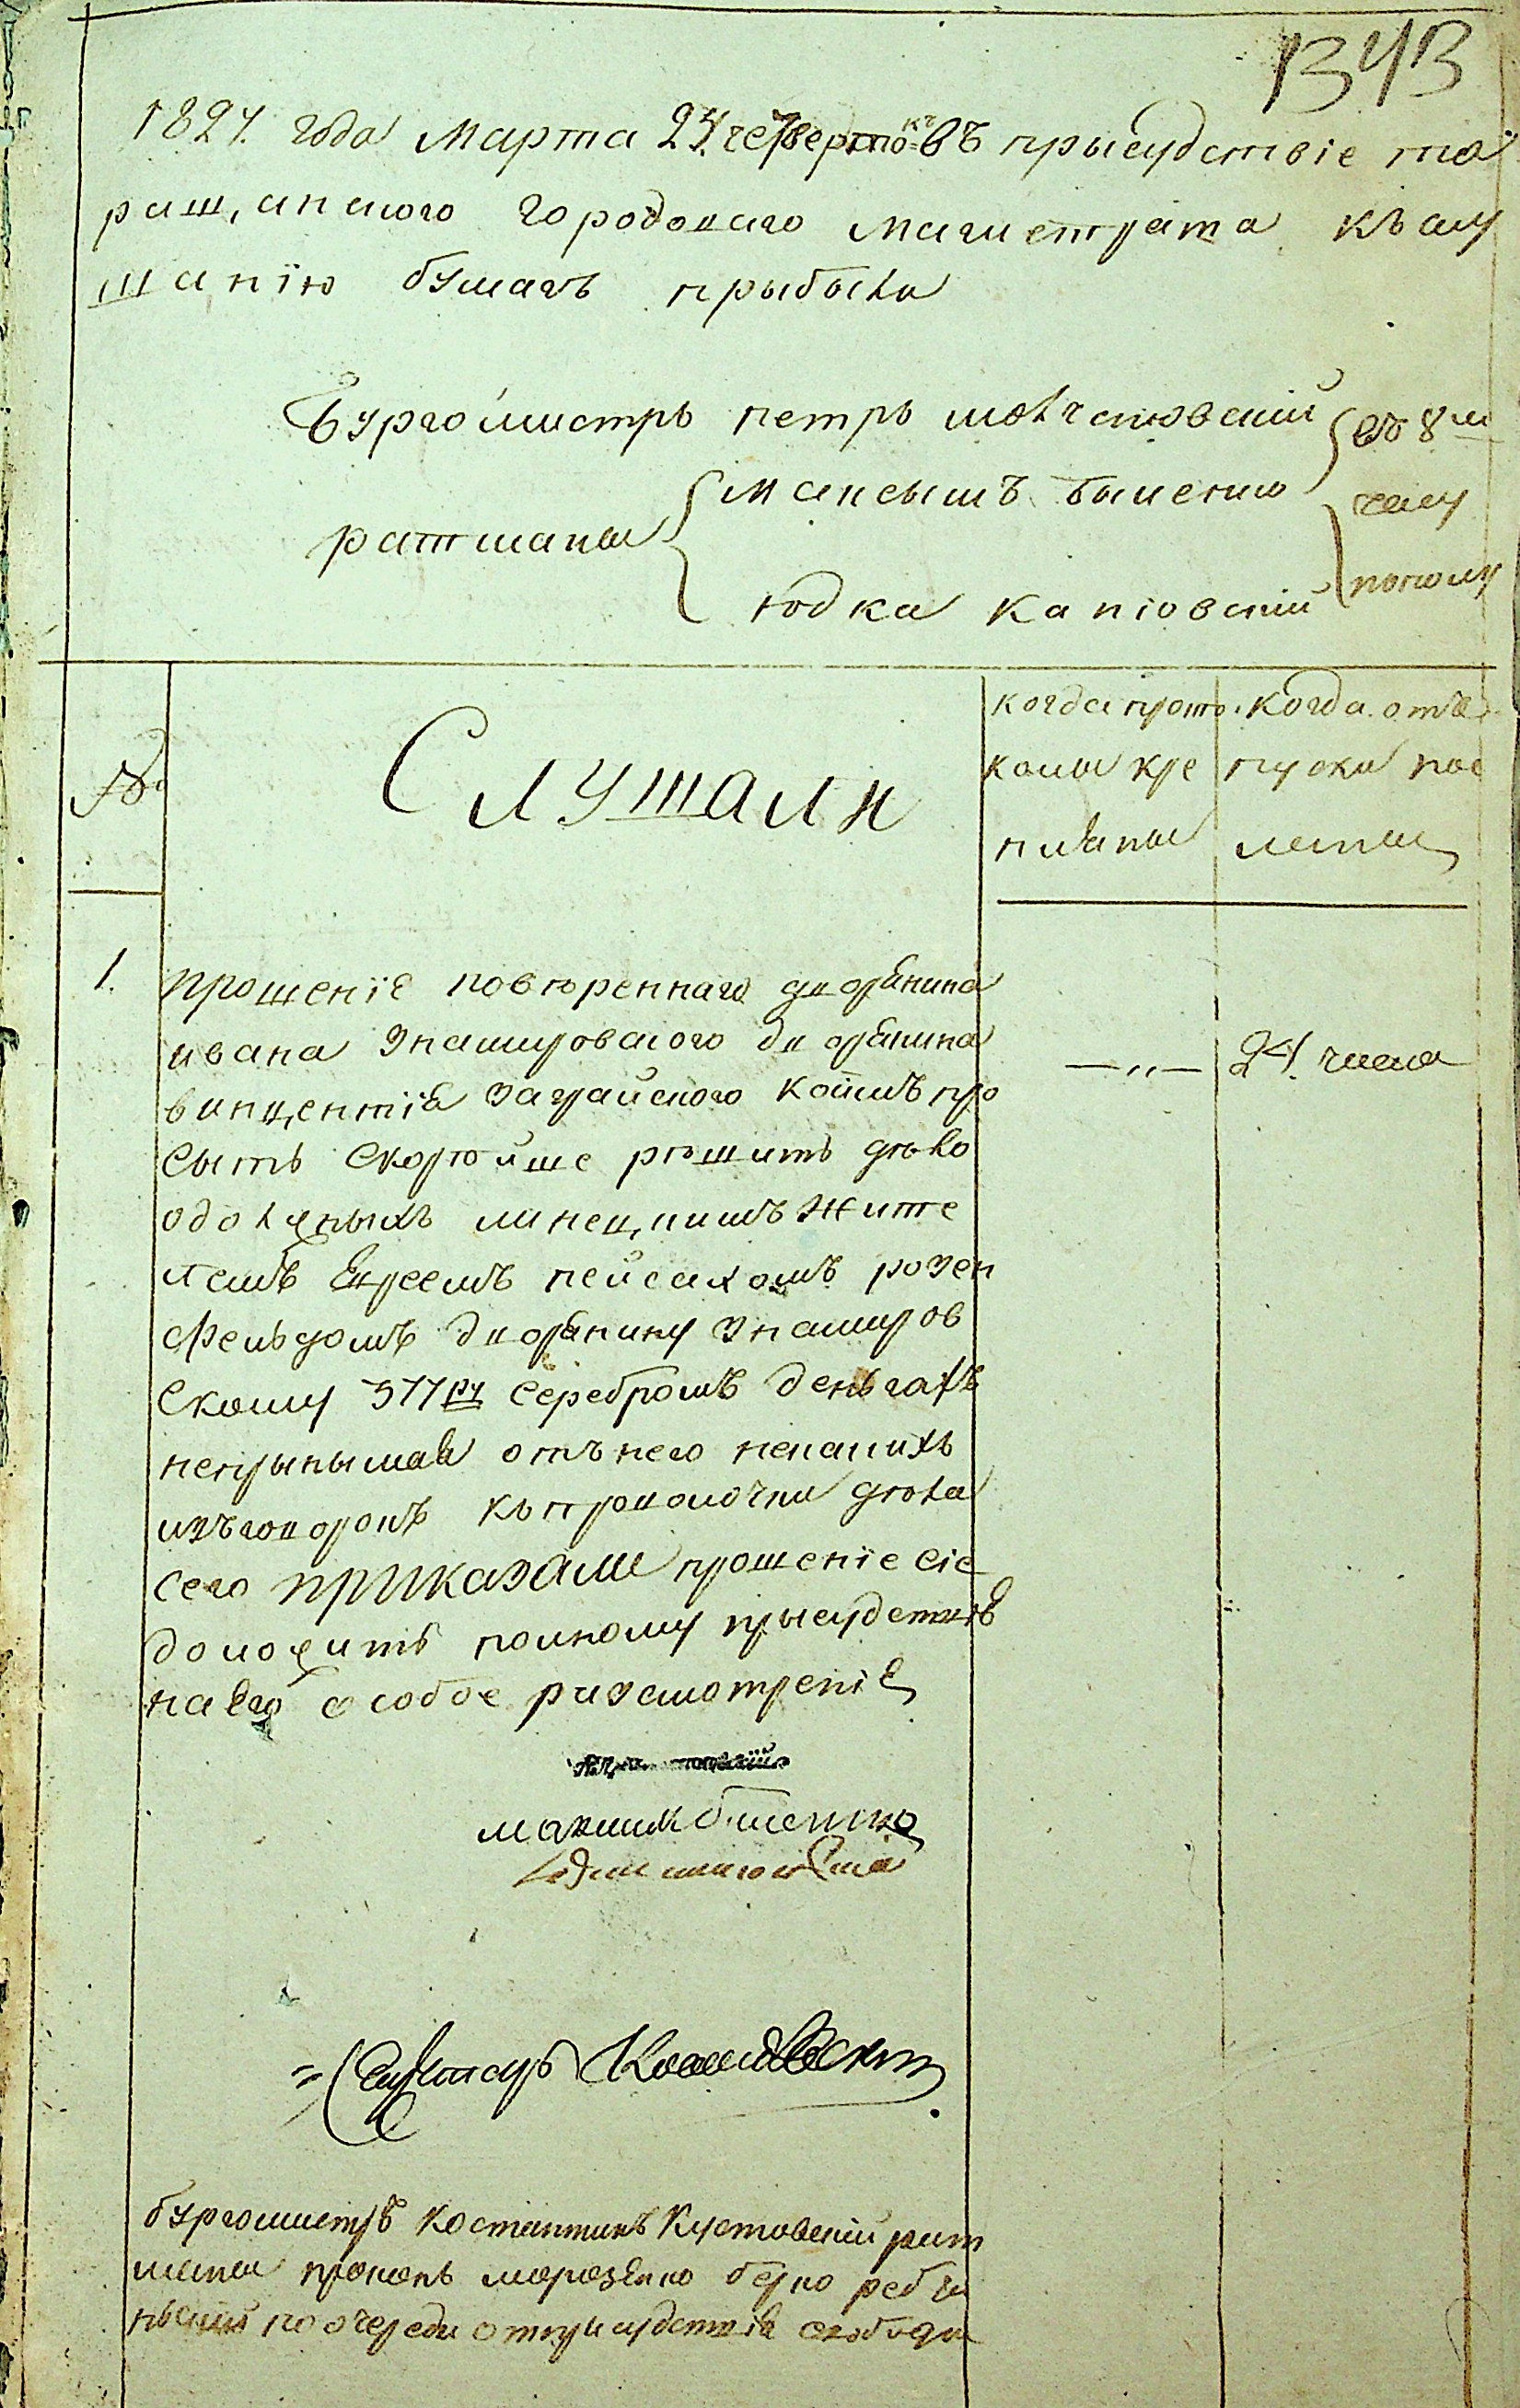 1343
1827. года марта 24. четвертокъ въ прысудствіе та
ращанского городоваго магистрата къ слу
шанію бумагъ прыбыли
Бургомистръ петръ
въ 8 м
ратманы
максымъ
часу
юдка каніовскій
№
Слушали
когда прото
колы кре
плѣны
когда отъ
пуски пос
ланы
1.
прошеніе повѣреннаго дворянина
ивана Знамировского дворянина
винцентія Заграйского коимъ про
сытъ скорѣйше рѣшить дѣло
одолженыхъ жите
лемъ Евреемъ пейсахомъ розен
фельдомъ дворянину Знамиров
скому 377 ру серебромъ деньгахъ
непрынымая отънего некакихъ
изъговоровъ къ проволочки дѣла
сего приказали прошеніе сіе
доложить полному прысудствію
на его особое разсмотреніе
— „ —
24. числа
максимъ
Секретарь
бургомистръ Костантинъ Кустовскій рат
маны прокопъ берко
по очереди отпрысудствія свободны